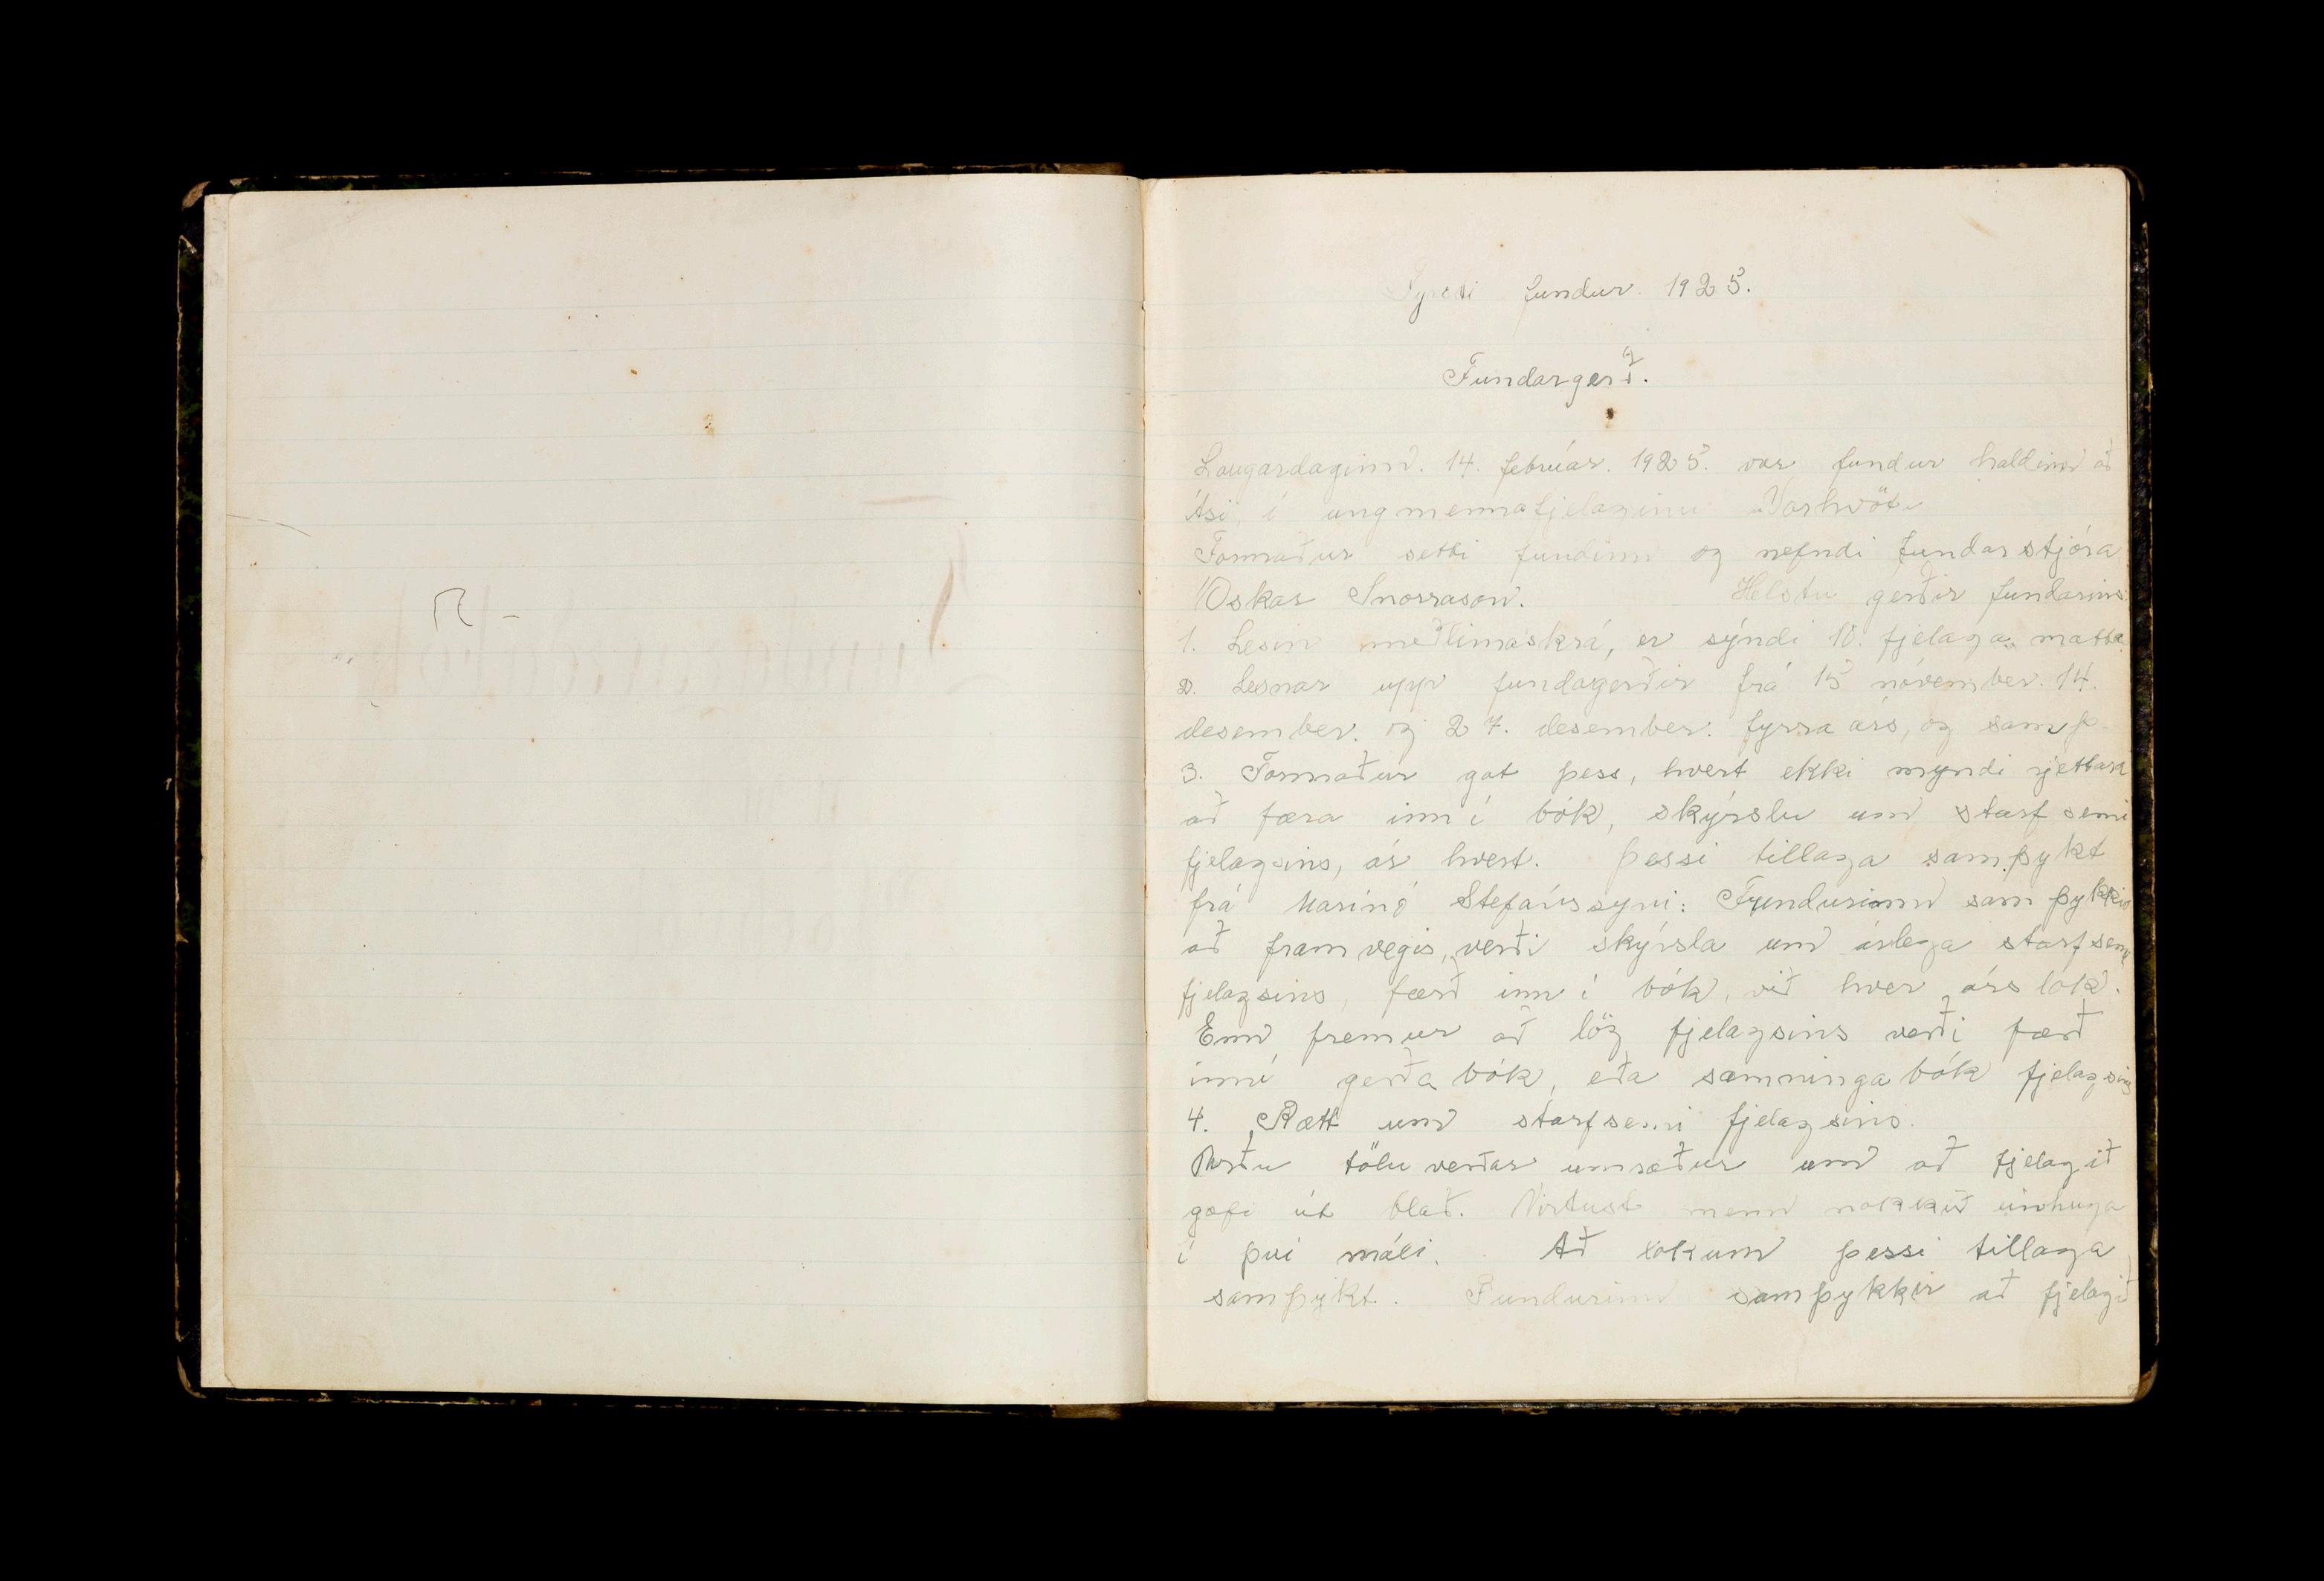 Fyrsti fundur 1925.
Fundargerð.
Laugardaginn. 14. febrúar. 1925. var fundur haldinn að
Ási, í ungmennafjelaginu Vorhvöt.
Formaður setti fundinn og nefndi fundarstjóra
Óskar Snorrason. Helstu gerðir fundarins
1. Lesin meðlimaskrá, er sýndi 10. fjelaga mætta
2. Lesnar upp fundagerðir frá 15 nóvember. 14.
desember. og 27. desember. fyrra árs, og samþ.
3. Formaður gat þess, hvert ekki myndi rjettara
að færa inn í bók, skýrslu um starfsemi
fjelagsins, ár hvert. Þessi tillaga samþykt
frá Marinó Stefánssyni: Fundurinn samþykkir
að framvegis, verði skýrsla um árlega starfsemi
fjelagsins, færð inn í bók, við hver árs lok.
Enn fremur að lög fjelagsins verði færð
inní gerðabók, eða samningabók fjelagsins
4. Rætt um starfsemi fjelagsins.
Urðu töluverðar umræður um að fjelagið
gæfi út blað. Virtust menn nokkuð einhuga
í því máli. Að lokum þessi tillaga
samþykt. Fundurinn samþykkir að fjelagið